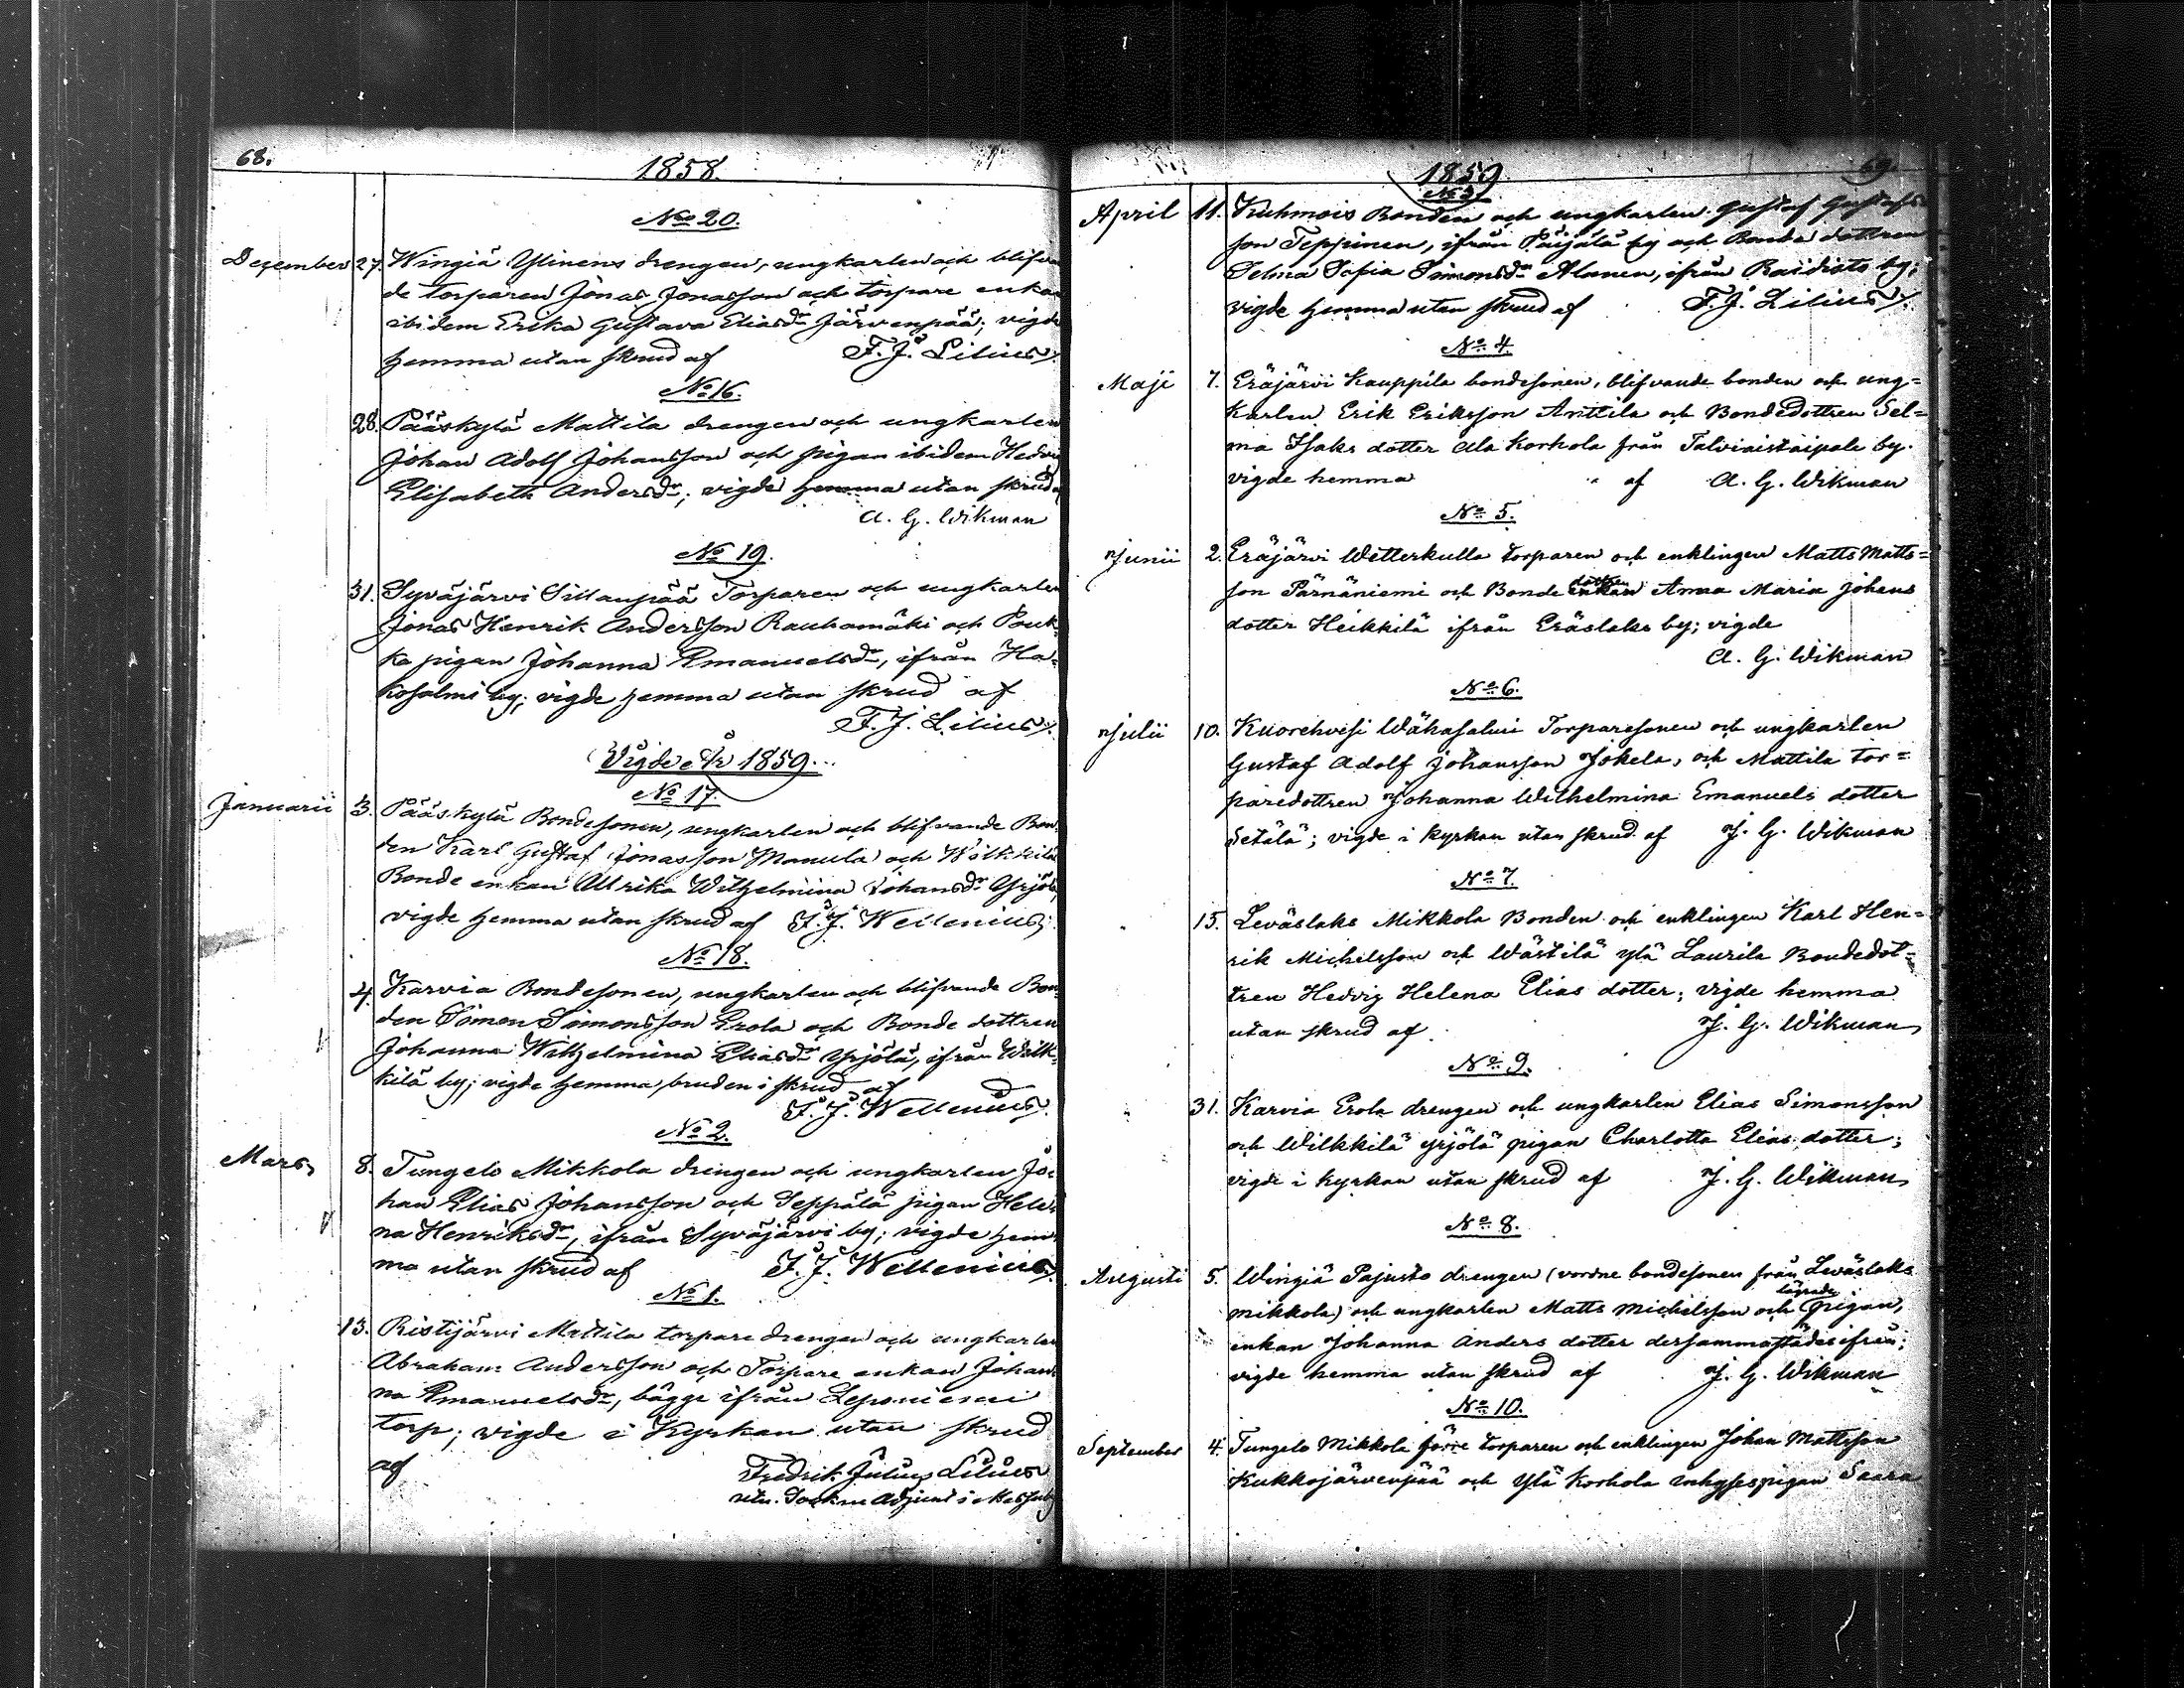 68.
1858.
No 20.
Dezember 27. Wingiä Ylinens drengen, ungkarlen och blifvan
de torparen Jonas Jonasson och torpare enkan
ibidem Erika Gustava Eliasdr Järvenpää; vigde
hemma utan skrud af F. J. Lilius
No 16.
28. Pääskylä Mattila drengen och ungkarlen
Johan Adolf Johansson och pigan ibidem Hedvig
Elisabeth Andersdr; vigde hemma utan skrud af
A. G. Wikman
No 19.
31. Syväjärvi Sillanpää Torparen och ungkarlen
Jonas Henrik Andersson Rauhamäki och Pouk-
ka pigan Johanna Emanuelsdr, ifrån Ha-
kosalmi by; vigde hemma utan skrud af
F. J. Lilius
Vigde År 1859.
No 17.
Januarii 3. Pääskylä Bondesonen, ungkarlen och blifvande Bon-
den Karl Gustaf Jonasson Manula och Wilkkilä
Bonde enkan Ulrika Wilhelmina Johansdr Yrjölä
vigde hemma utan skrud af F. J. Wellenius
No 18.
4. Karvia Bondesonen, ungkarlen och blifvande Bon-
den Simon Simonsson Erola och Bonde dottren
Johanna Wilhelmina Eliasdr Yrjölä, ifrån Wilk-
kilä by; vigde hemma, bruden i skrud af
F. J. Wellenius
No 2.
Mars 8. Tungelo Mikkola drengen och ungkarlen Jo-
han Elias Johansson och Seppälä pigan Hele-
na Henriksdr, ifrån Syväjärvi by; vigde hem-
ma utan skrud af F. J. Wellenius
No 1.
13. Ristijärvi Mattila torpare drengen och ungkarlen
Abraham Andersson och Torpare enkan Johan-
na Emanuelsdr, bägge ifrån Leponiemi
torp; vigde i Kyrkan utan skrud
af Fredrik Julius Lilius
Adjunct i
69.
1859
No 3.
April 11. Kuhmois Bonden och ungkarlen Gustaf Gustafs-
son Teppinen, ifrån Päijälä by och Bonde dottren
Selma Sofia Simonsdr Alanen, ifrån Raidisto by;
vigde hemma utan skrud af F. J. Lilius
No 4.
Maji 7. Eräjärvi Kauppila bondesonen, blifvande bonden och ung=
karlen Erik Eriksson Anttila och Bondedottren Sel=
ma Isaks dotter Ala Korhola från Talviaistaipale by.
vigde hemma af A. G. Wikman
No 5.
Junii 2. Eräjärvi Wetterkulla torparen och enklingen Matts Matts=
son Pärnäniemi och Bonde enkan dottren Anna Maria Johans
dotter Heikkilä ifrån Eräslaks by; vigde
A. G. Wikman
No 6.
Julii 10. Kuorehvesi Wähasalmi Torparesonen och ungkarlen
Gustaf Adolf Johansson Jokela, och Mattila tor=
paredottren Johanna Wilhelmina Emanuels dotter
Setälä; vigde i kyrkan utan skrud af J. G. Wikman
No 7.
15. Leväslaks Mikkola Bonden och enklingen Karl Hen=
rik Michelsson och Wästilä Ylä Laurila Bondedot=
tren Hedvig Helena Elias dotter; vigde hemma
utan skrud af J. G. Wikman
No 9.
31. Karvia Erola drengen och ungkarlen Elias Simonsson
och Wilkkilä Yrjölä pigan Charlotta Elias dotter;
vigde i kyrkan utan skrud af J. G. Wikman
No 8.
Augusti 5. Wingiä Pajusto drengen (vordne bondesonen från Leväslaks
Mikkola) och ungkarlen Matts Michelsson och lägrade pigan,
enkan Johanna Anders dotter dersammastädes ifrån;
vigde hemma utan skrud af J. G. Wikman
No 10.
September 4. Tungelo Mikkola förre torparen och enklingen Johan Mattsson
Kukkojärvenpää och Ylä Korhola inhysespigan Saara